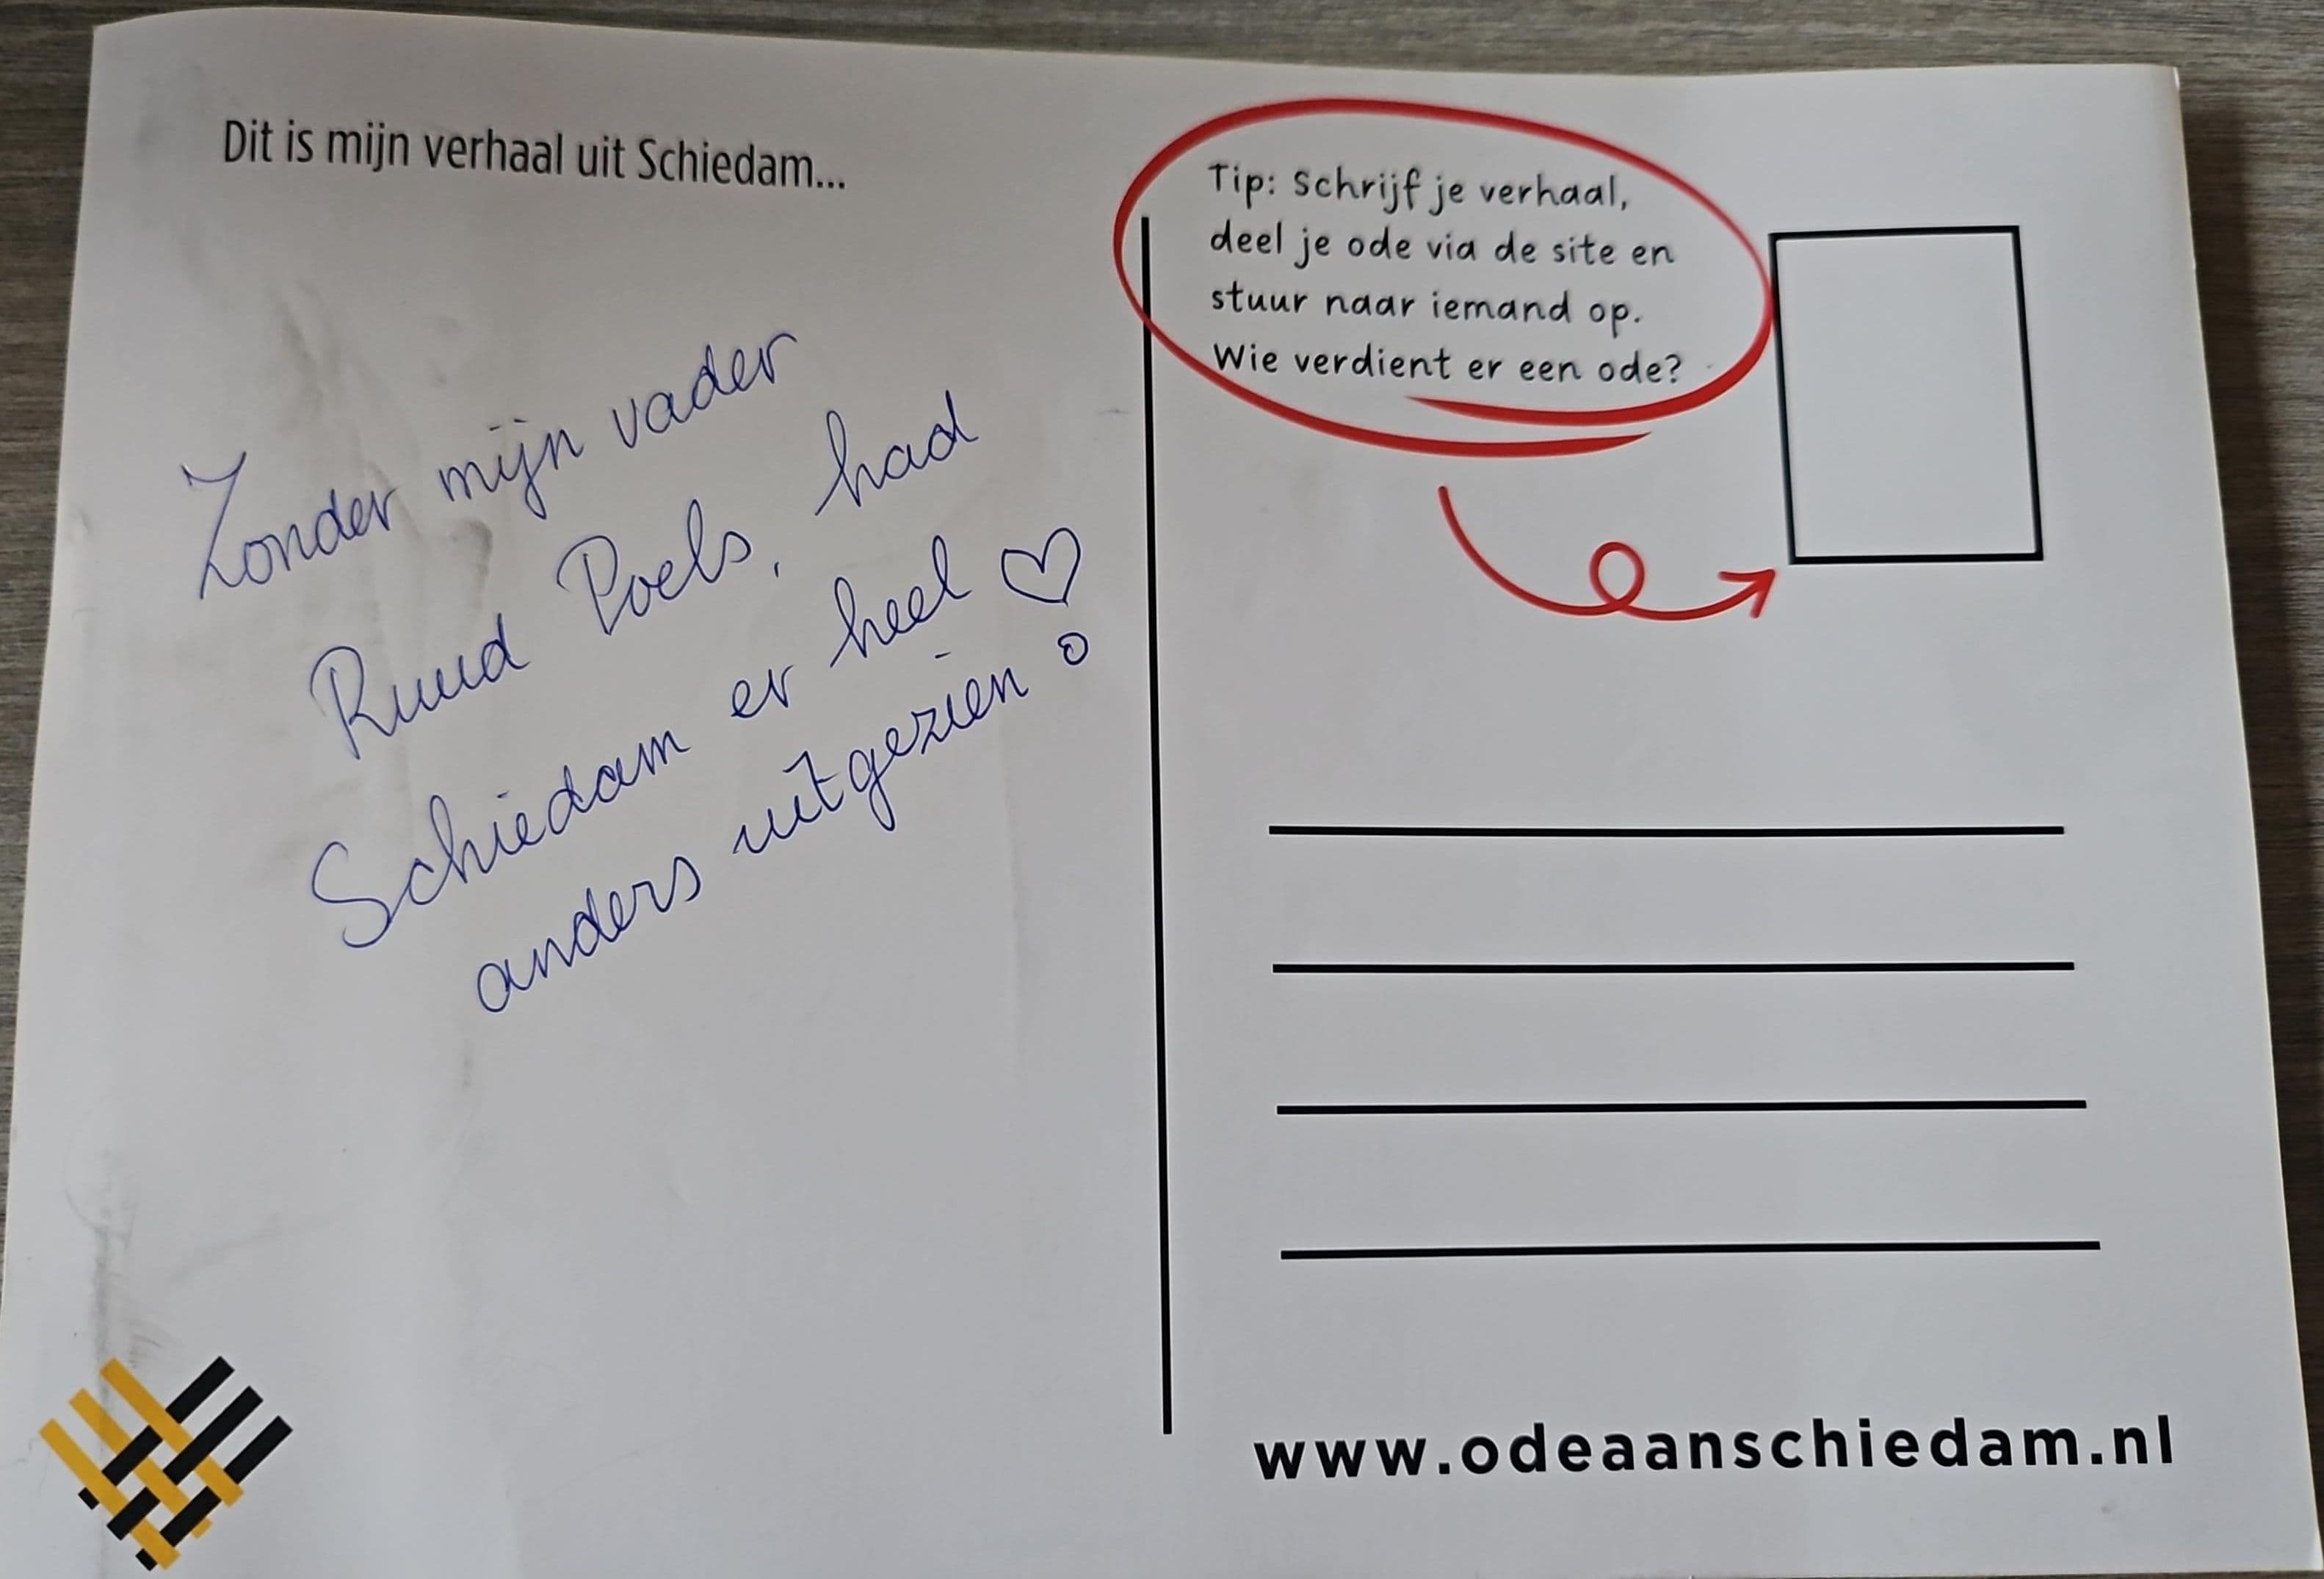 Dit is mijn verhaal uit Schiedam...
Zonder mijn vader
Ruud Poels, had
Schiedam er heel
anders uitgezien
Tip: Schrijf je verhaal,
deel je ode via de site en
stuur naar iemand op.
Wie verdient er een ode?
www.odeaanschiedam.nl